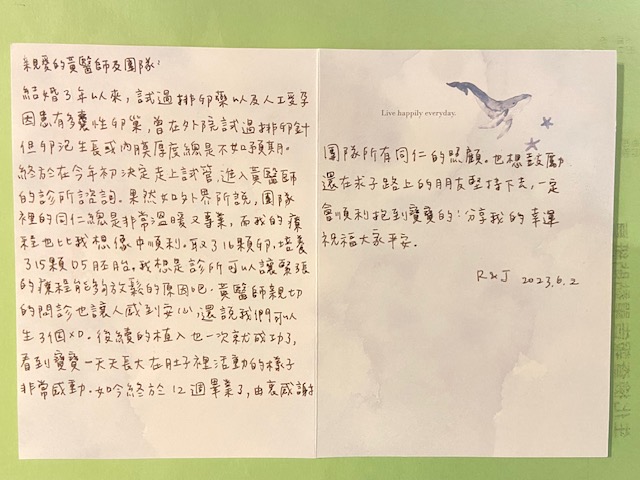 親愛的黃醫師及團隊：
結婚3年以來，試過排卵藥以及人工受孕
因患有多囊性卵巢，曾在外院試過排卵針
但卵泡生長或內膜厚度總是不如預期。
終於在今年初決定走上試管，進入黃醫師
的診所諮詢。果然如外界所說，團隊
裡的同仁總是非常溫暖又專業，而我的療
程也比我想像中順利。取了16顆卵，培養
了15顆D5胚胎，我想是診所可以讓緊張
的療程能夠放鬆的原因吧。黃醫師親切
的問診也讓人感到安心，還說我們可以
生3個XD。後續的植入也一次就成功了，
看到寶寶一天天長大在肚子裡活動的樣子
非常感動。如今終於12週畢業了，由衷感謝
Live happily everyday.
團隊所有同仁的照顧。也想鼓勵
還在求子路上的朋友堅持下去，一定
會順利抱到寶寶的！分享我的幸運
祝福大家平安。
R&J 2023.6.2